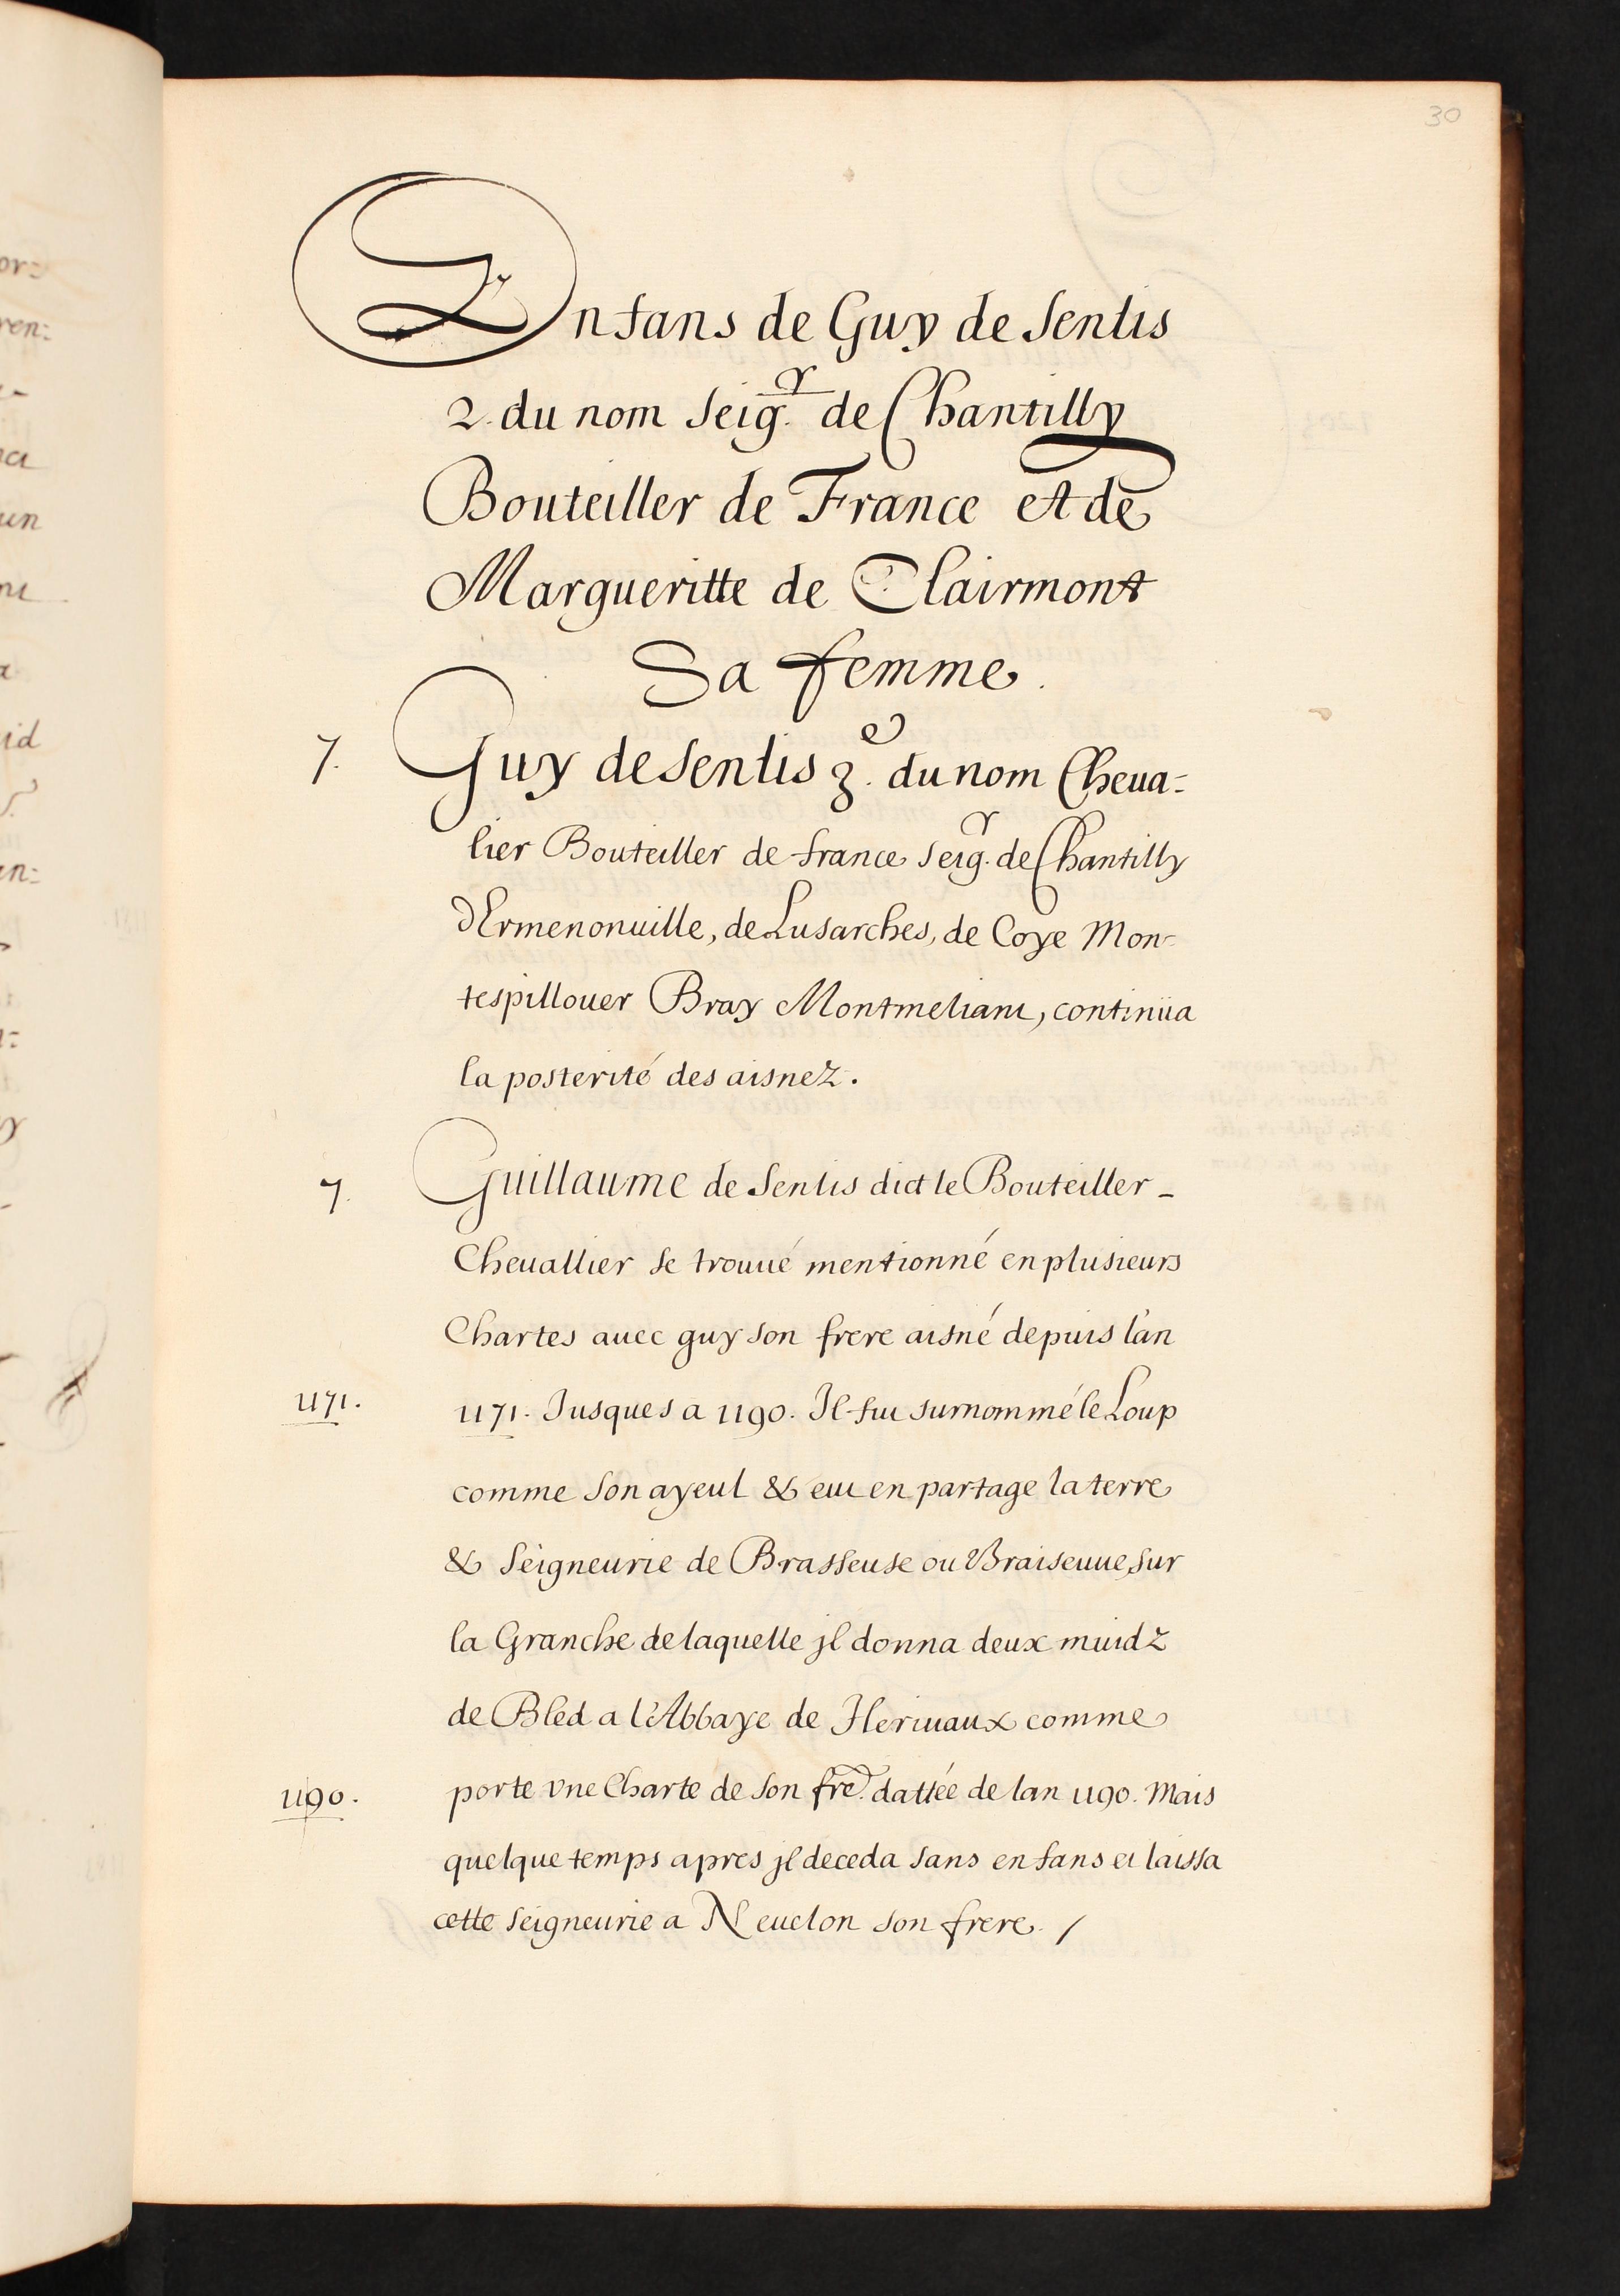 30
Enfans de Guy de Senlis
2. du nom Seig.r de Chantilly
Bouteiller de France et de
Margueritte de Clairmont
Sa femme.
7. Guy de Senlis 3.e du nom Cheua=
lier Bouteiller de france Seig.r de Chantilly
d'Ermenonuille, de Lusarches, de Coye Mon-
tespillouer Bray Montmeliant, continüa
la posterité des aisnez.
7. Guillaume de Senlis dict le Bouteiller -
Cheuallier se trouué mentionné en plusieurs
Chartes auec guy son frere aisné depuis l'an
1171. 1171. Jusques a 1190. Il fut surnommé le Loup
comme son ayeul & eut en partage la terre
& Seigneurie de Brasseuse ou Braiseuue, sur
la Granche de laquelle jl donna deux muidz
de Bled a l'Abbaye de Heriuaux comme
1190. porte vne Charte de son fre. dattée de lan 1190. Mais
quelque temps apres jl deceda sans enfans et laissa
cette seigneurie a Neuelon son frere. /